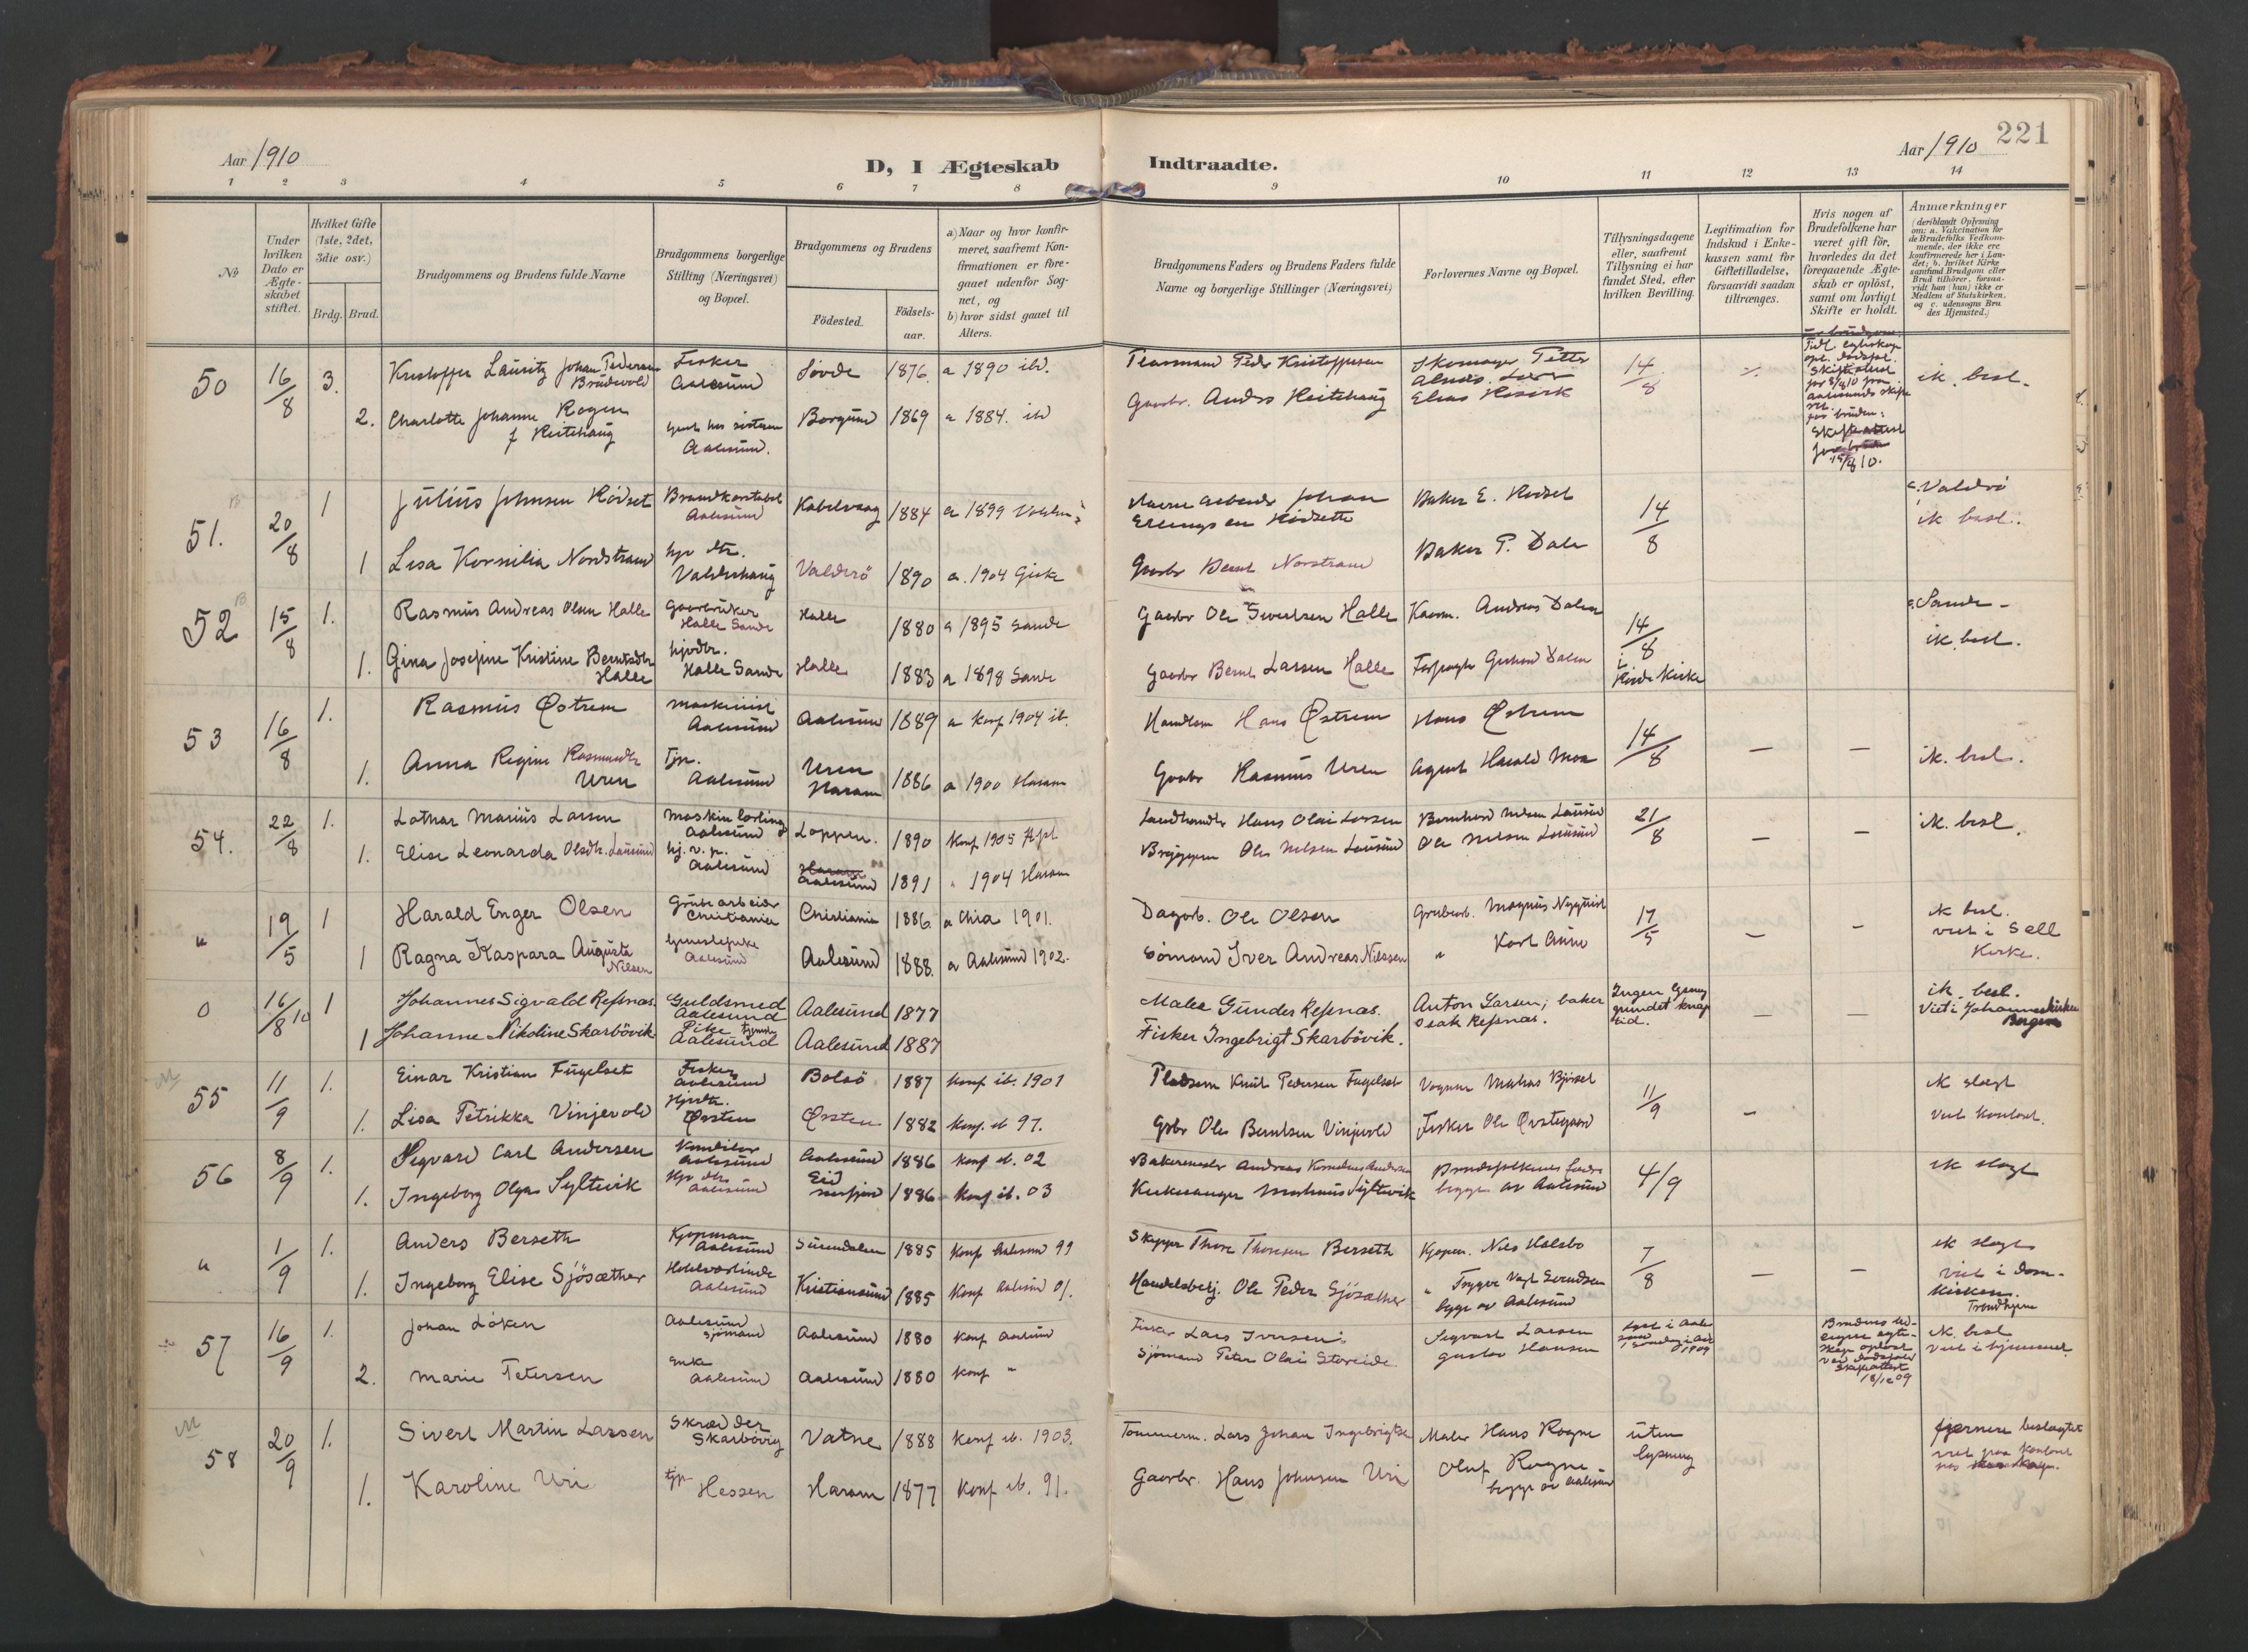 221
Aar 1910
D, I Ægteskab Indtraadte.
Aar 1910
1 2 3 4 5 6 7 8 9 10 11 12 13 14
No
Under hvilken Dato er Ægteskabet stiftet.
Hvilket Gifte (1ste, 2det, 3die osv.)
Brdg. Brud.
Brudgommens og Brudens fulde Navne
Brudgommens borgerlige Stilling (Næringsvei) og Bopæl.
Brudgommens og Brudens
Födested.
Födselsaar.
a) Naar og hvor konfirmeret, saafremt Konfirmationen er foregaaet udenfor Sognet, og
b) hvor sidst gaaet til Alters.
Brudgommens Faders og Brudens Faders fulde Navne og borgerlige Stillinger (Næringsvei)
Forlovernes Navne og Bopæl.
Tillysningsdagene eller, saafremt Tillysning ei har fundet Sted, efter hvilken Bevilling.
Legitimation for Indskud i Enkekassen samt for Giftetilladelse, forsaavidt saadan tiltrænges.
Hvis nogen af Brudefolkene har været gift för, hvorledes da det foregaaende Ægteskab er oplöst, samt om lovligt Skifte er holdt.
Anmærkninger
(deriblandt Oplysning om: a. Vakcination for de Brudefolks Vedkommende, der ikke ere konfirmerede her i Landet; b. hvilket Kirkesamfund Brudgom eller Brud tilhører, forsaavidt han (hun) ikke er Medlem af Statskirken, og c. udensogns Brudes Hjemsted.)
50 16/8 3. Kristoffer Lauritz Johan Pedersen Brudevold Fisker Aalesund Søvde 1876. a 1890 ibd. Peder Kristoffersen Skomager Petter 14/8 ik. besl.
2. Charlotte Johanne Rogen f Heitehaug Aalesund. Borgund 1869 a 1884. ibd Gaardbr. Anders Heitehaug Elias
51. 20/8 1 Julius Johnsen Rödset Brandkonstabel Aalesund Kabelvaag 1884 a 1899 Johan Ellingsen Rödsette Baker E. Rödset 14/8 c. Valderö ik besl.
1 Lisa Kornilia Nordstrand hjv dtr. Valderhaug Valderö 1890 a. 1904 Giske Gaardbr Bernt Norstrand Baker P. Dale
52 15/8 1. Rasmus Andreas Olsen Halle Gaardbruker Halle Sande Halle 1880 a 1895 Sande Gaardbr Ole Sivertsen Halle Andreas Dalen 14/8 i Kirke c. Sande ik. besl.
1. Gina Josefine Kristine Berntsdtr Halle hjvdtr. Halle Sande Halle 1883 a 1898 Sande Gaardbr Bernt Larsen Halle Dalen
53 16/8 1. Rasmus Østrem maskinist Aalesund Aalesund 1889 a konf 1904 ib. Handlsm Hans Østrem Hans Østrem 14/8 — — ik. besl.
1. Anna Regine Rasmusdtr Uren Tjn. Aalesund Uren Haram 1886 a 1900 Haram Gaardbr Rasmus Uren Agent Harald Moa
54. 22/8 1. Lothar Marius Larsen maskinlærling Aalesund Loppen. 1890 konf 1905 Landhandler Hans Olai Larsen Bernhard Nilsen Lausund 21/8 — — ik. besl.
1. Elise Leonarda Olsdtr. Lausund hj. v. p. Aalesund Haram Aalesund 1891 " 1904 Haram Ole Nilsen Lausund Ole Nilsen Lausund
" 19/5 1 Harald Enger Olsen Grubearbeider Christiania Christiania 1886 a Chra 1901. Dagarb. Ole Olsen Grubearb. Magnus Nyquist 17/5 — — ik besl. viet i Sell Kirke.
1 Ragna Kaspara Augusta Nilsen Aalesund Aalesund 1888. a Aalesund 1902. Sömand Iver Andreas Nilssen " Karl
0 16/8 10 1 Johannes Sigvald Refsnas. Guldsmed Aalesund Aalesund 1877 Maler Gunder Refsnas. Anton Larsen, baker Ingen lysning grundet knap tid. — — ik. besl. Viet i Johanneskirken Bergen
1 Johanne Nikoline Skarbövik Pike Aalesund Aalesund 1887 Fisker Ingebrigt Skarbövik. Isak Refsnas.
55 11/9 1. Einar Kristian Fugelset Fisker Aalesund Bolsö 1887 konf ib. 1901 Pladsm Knut Pedersen Fugelset Vognm Mathias Bjørset 11/9 — ik slegt
1. Lisa Petrikka Vinjevold Hjvdtr. Ørsten Ørsten 1882 konf. ib 97. Grbr Ole Berntsen Vinjevold Fisker Ole Ørstegaard viet kontoret.
56 8/9 1. Sigvard Carl Andersen Konditor Aalesund Aalesund 1886 konf ib. 02 Bakermester Andreas Kornelius Andersen Brudefolkenes fædre 4/9 ik slegt
1. Ingeborg Olga Syltevik Hjv dtr Aalesund Eid 1886 konf ib. 03 Kirkesanger Syltevik begge av Aalesund
" 1/9 1. Anders Berseth Kjøpman Aalesund Surendalen 1885 konf Aalesund 99 Skipper Thore Thoresen Berseth Kjøpm. Nils Holsbo 7/8 — — ik slegt
1. Ingeborg Elise Sjösæther Hotelværtinde Aalesund Kristiansund 1885 konf Aalesund 01. Handelsbetj. Ole Peder Sjösæther " Trygve Vagt Svendsen begge av Aalesund viet i Domkirken. Trondhjem
57 16/9 1. Johan Löken Aalesund sjömand Aalesund 1880 konf Aalesund Fisker Lars Iversen Sigvart Larsen lyst i Aalesund 1909 ik. besl viet i hjemmet.
2. Marie Petersen Enke Aalesund Aalesund 1880 konf " Sjömand Peter Olai Storeide Gustav Hansen Brudens tidligere egteskap oplöst ved dödsfald Skifteattest 18/12 09
M 58 20/9 1. Sivert Martin Larsen Skrædder Skarbövig Vatne 1888 konf ib. 1903. Tømmerm. Lars Johan Ingebrigtsen Maler Hans Rogne uten lysning fjernere beslegtet viet paa kontoret
1. Karoline Uri tjp Hessen Haram 1877 konf ib. 91. Gaardbr. Hans Johnsen Uri Oluf Rogne begge av Aalesund